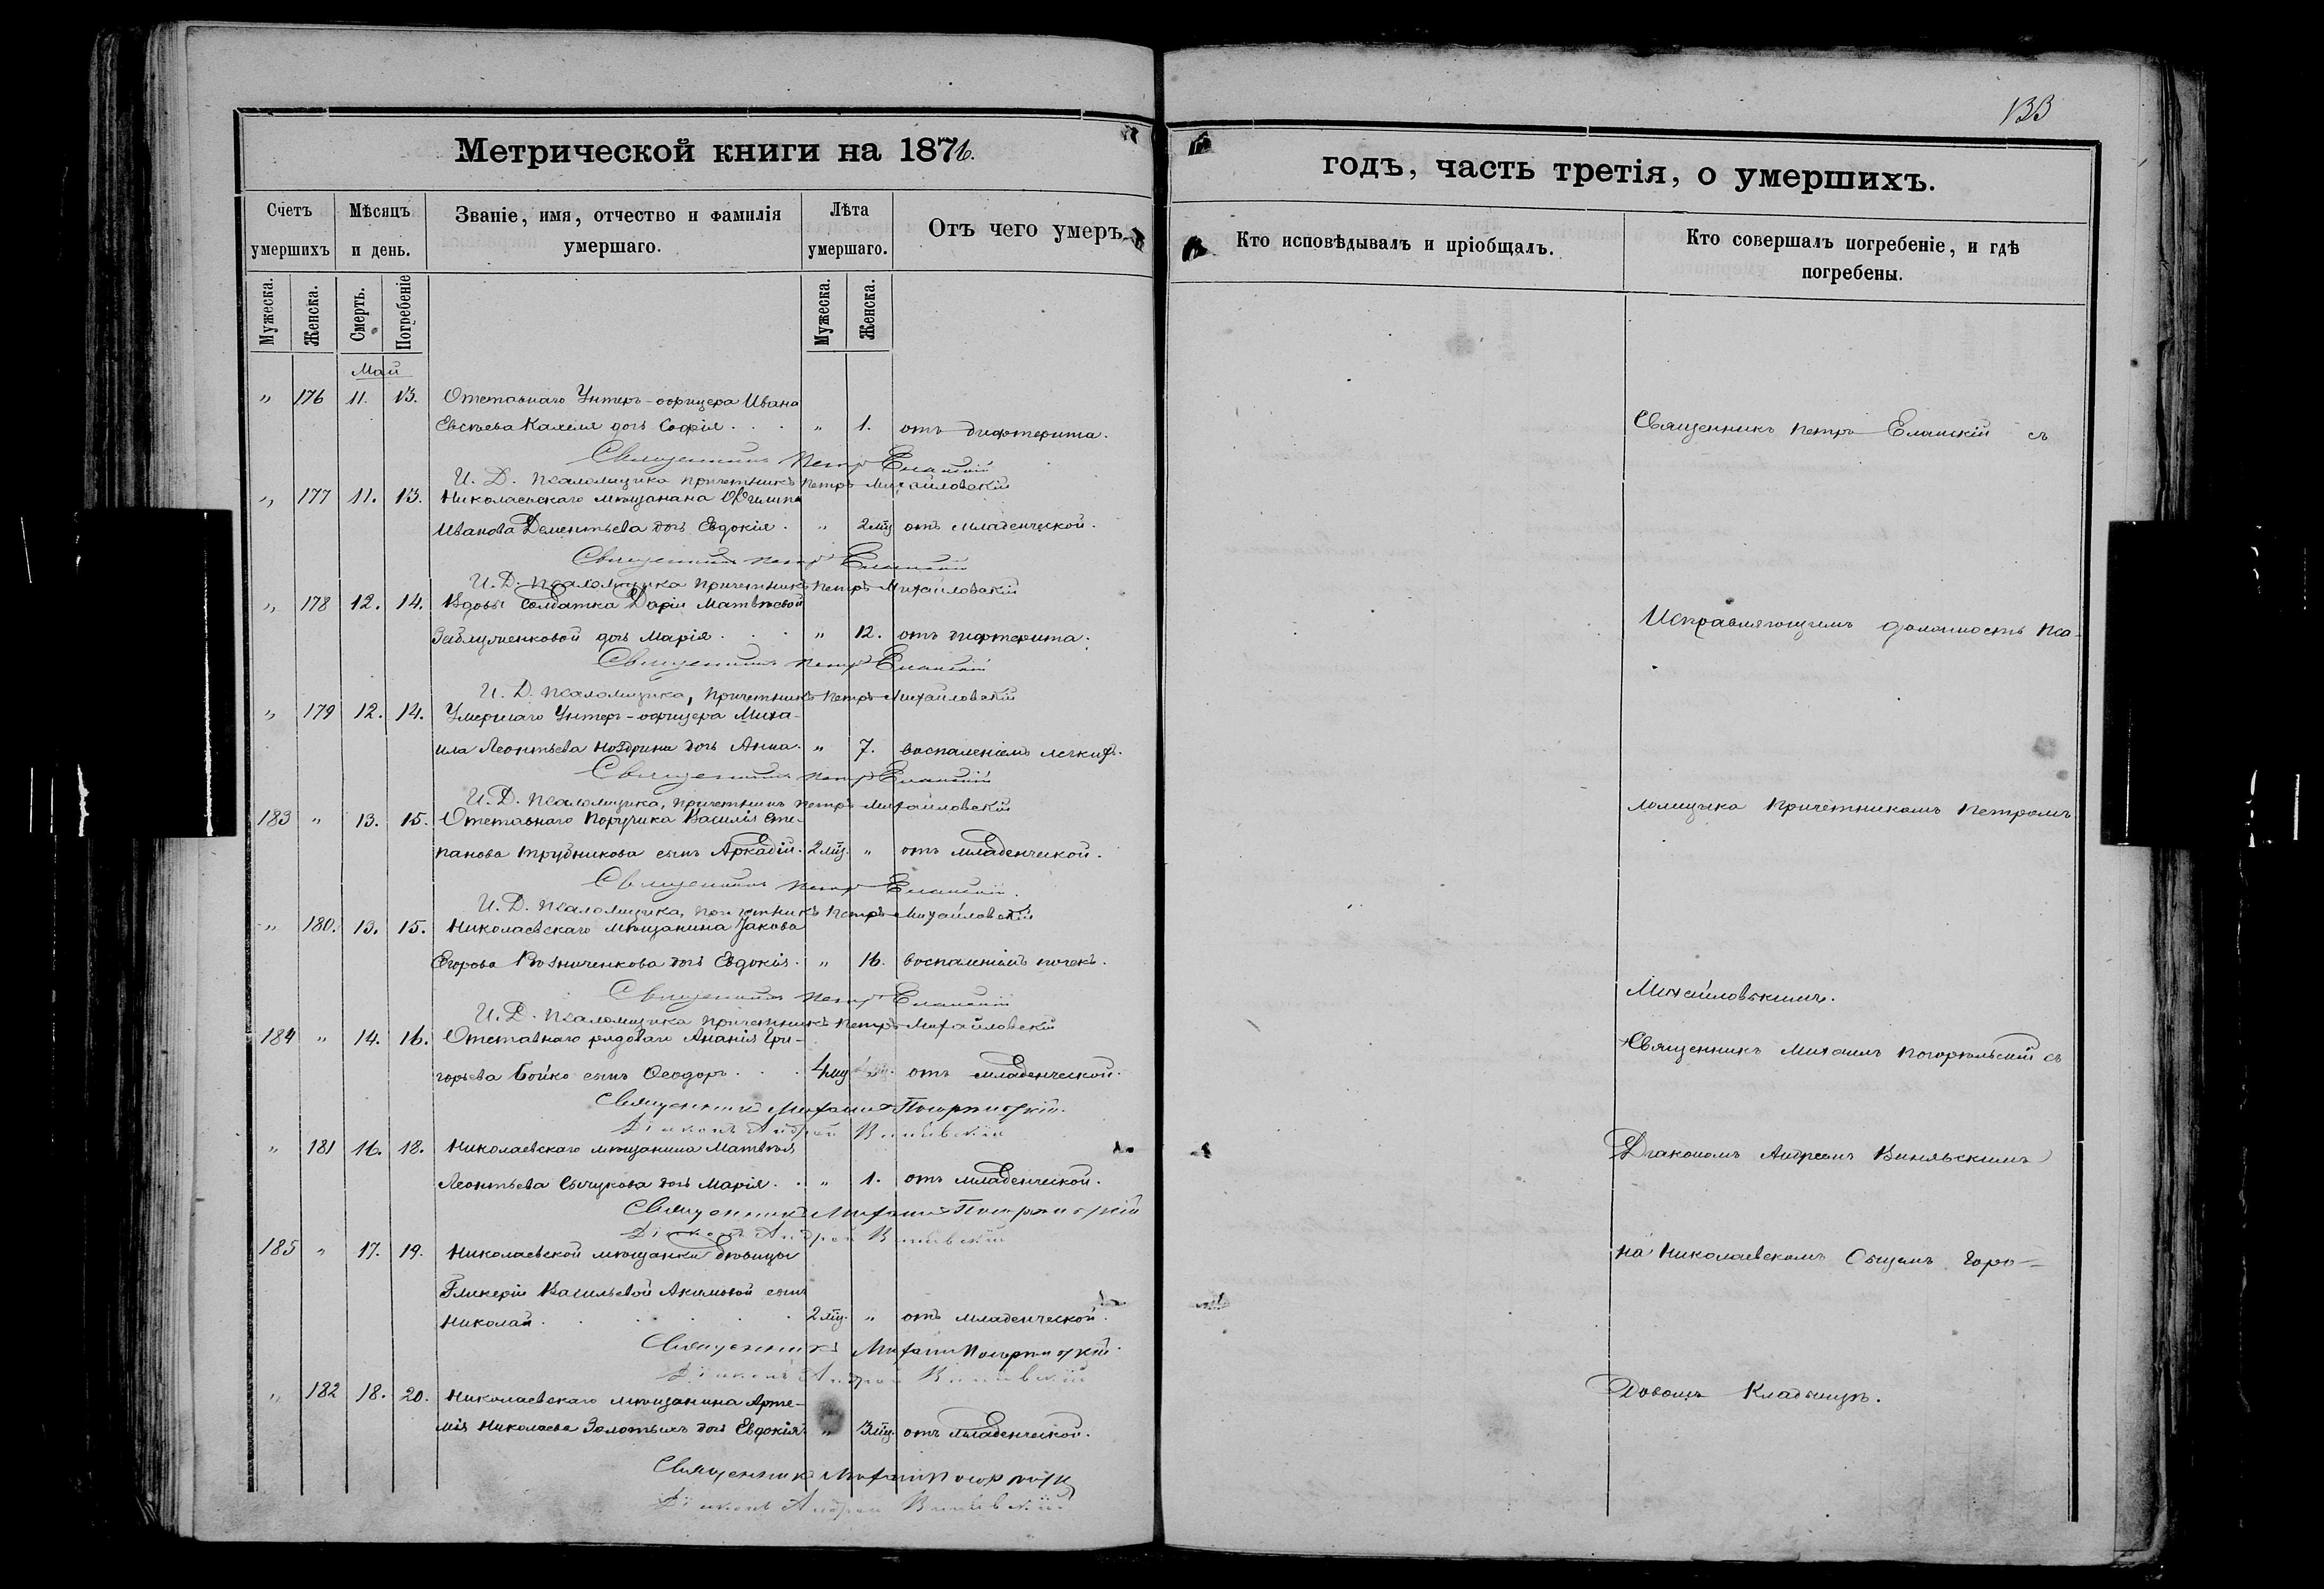 133
Метрической книги на 1876.
годъ, часть третія, о умершихъ.
Счетъ умершихъ
Мѣсяцъ и день.
Званіе, имя, отчество и фамилія умершаго.
Лѣта умершаго.
Отъ чего умеръ.
Кто исповѣдывалъ и пріобщалъ.
Кто совершалъ погребеніе, и гдѣ погребены.
Мужеска.
Женска.
Смерть.
Погребеніе
Мужеска.
Женска.
Май
" 176 11. 13. Отставнаго Унтеръ-офицера Ивана
дочь Софія . . . " 1. отъ дифтерита.
Священникъ Петръ Еланскій
И. Д. Псаломщика Причетникъ Петръ Михайловскій
" 177 11. 13. Николаевскаго мѣщанина
Иванова Дементьева дочь Евдокія . " 2 мц отъ младенческой.
Священникъ Петръ Еланскій
И. Д. Псаломщика Причетникъ Петръ Михайловскій
" 178 12. 14. Вдовы Солдатка Даріи Матвѣевой
дочь Марія . . . " 12. отъ дифтерита.
Священникъ Петръ Еланскій
И. Д. Псаломщика, Причетникъ Петръ Михайловскій
" 179 12. 14. Умершаго Унтеръ-офицера Миха-
ила Леонтьева Ноздрина дочь Анна. " 7. воспаленіемъ легкихъ.
Священникъ Петръ Еланскій
И. Д. Псаломщика, Причетникъ Петръ Михайловскій
183 " 13. 15. Отставнаго Поручика Василія Сте-
панова Трубникова сынъ Аркадій. 2 мц. " отъ младенческой.
Священникъ Петръ Еланскій.
И. Д. Псаломщика, Причетникъ Петръ Михайловскій
" 180. 13. 15. Николаевскаго мѣщанина Якова
Егорова дочь Евдокія. " 16. воспаленіемъ почекъ.
Священникъ Петръ Еланскій
И. Д. Псаломщика Причетникъ Петръ Михайловскій
184 " 14. 16. Отставнаго рядоваго Ананія Гри-
горьева Бойко сынъ Ѳеодоръ . . . 4 мц " отъ младенческой.
Священникъ Михаилъ Погорѣльскій.
Діаконъ Андрей
" 181 16. 18. Николаевскаго мѣщанина Матвѣя
Леонтьева дочь Марія . . " 1. отъ младенческой.
Священникъ Михаилъ Погорѣльскій
Діаконъ Андрей
185 " 17. 19. Николаевской мѣщанки дѣвицы
Гликеріи Васильевой Акимовой сынъ
Николай . . . . . . 2 мц. " отъ младенческой.
Священникъ Михаилъ Погорѣльскій.
Діаконъ Андрей
" 182 18. 20. Николаевскаго мѣщанина Арте-
мія Николаева Золотыхъ дочь Евдокія " 3 мц. отъ младенческой.
Священникъ Михаилъ
Діаконъ Андрей
Священникъ Петръ Еланскій съ
Исправляющимъ должность Пса-
ломщика Причетникомъ Петромъ
Михайловскимъ.
Священникъ Михаилъ Погорѣльскій съ
Діакономъ Андреемъ
на Николаевскомъ Общемъ Горо-
довомъ Кладбищѣ.